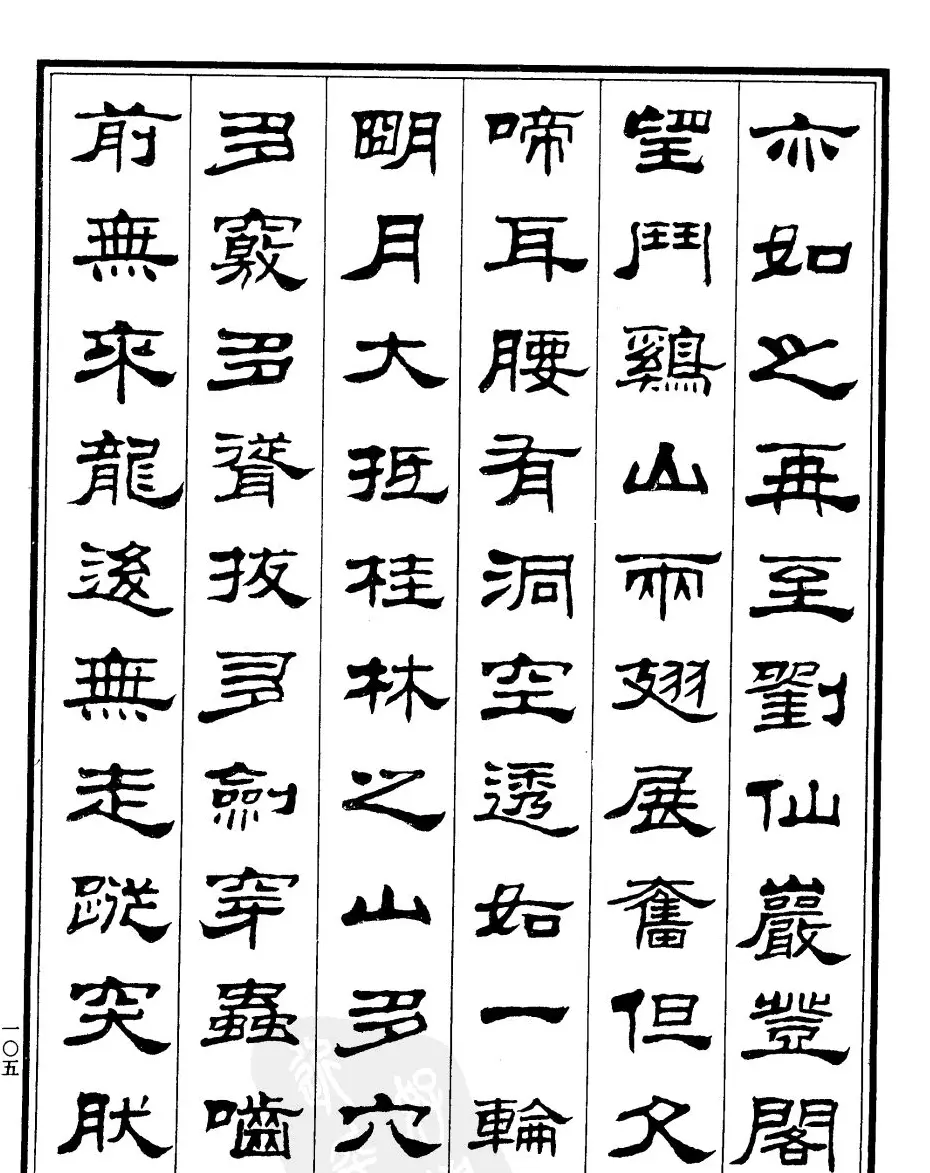 亦如之再至劉仙巖登閣
望鬥鷄山兩翅展奮但欠
啼耳腰有洞空透如一輪
明月大抵桂林之山多穴
多竅多聳拔多劍穿蟲嚙
前無來龍後無走蹤突肰
一〇五